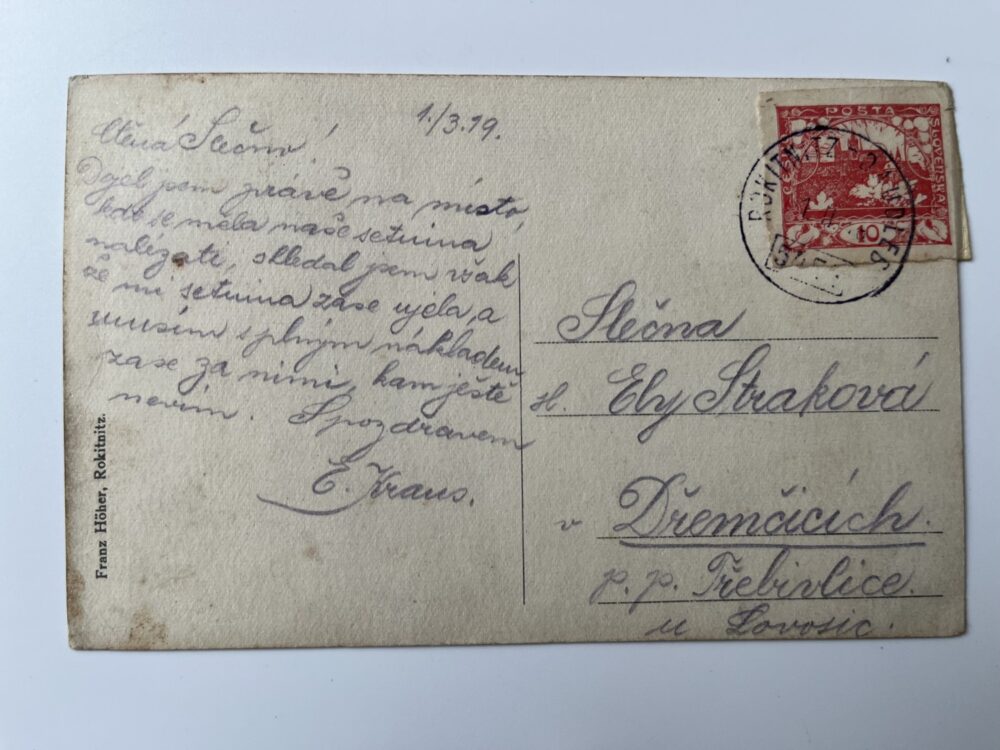 1./3.19.
Ctěná Slečno!
Dojel jsem právě na místo,
kde se měla naše setnina
nalezati, shledal jsem však
že mi setnina zase ujela, a
musím s plným nákladem
zase za nimi, kam ještě
nevím. S pozdravem
E. Kraus.
Franz Höher, Rokitnitz.
POŠTA
SLOVENSKÁ
10
ROKITNITZ
Slečna
sl. Ely Straková
v Dřemčicích.
p. p. Třebivlice.
u Lovosic.